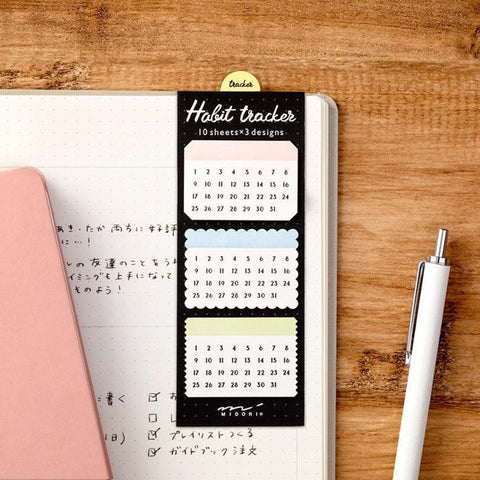 tracker
Habit tracker
10 sheets×3 designs
1 2 3 4 5 6 7 8
9 10 11 12 13 14 15 16
17 18 19 20 21 22 23 24
25 26 27 28 29 30 31
1 2 3 4 5 6 7 8
9 10 11 12 13 14 15 16
17 18 19 20 21 22 23 24
25 26 27 28 29 30 31
1 2 3 4 5 6 7 8
9 10 11 12 13 14 15 16
17 18 19 20 21 22 23 24
25 26 27 28 29 30 31
MIDORI®
たか 両方に 好評
に…!
しの友達のことを
イミングも上手になって
そのよう!
書く
プレイリストつくる
ガイドブック注文